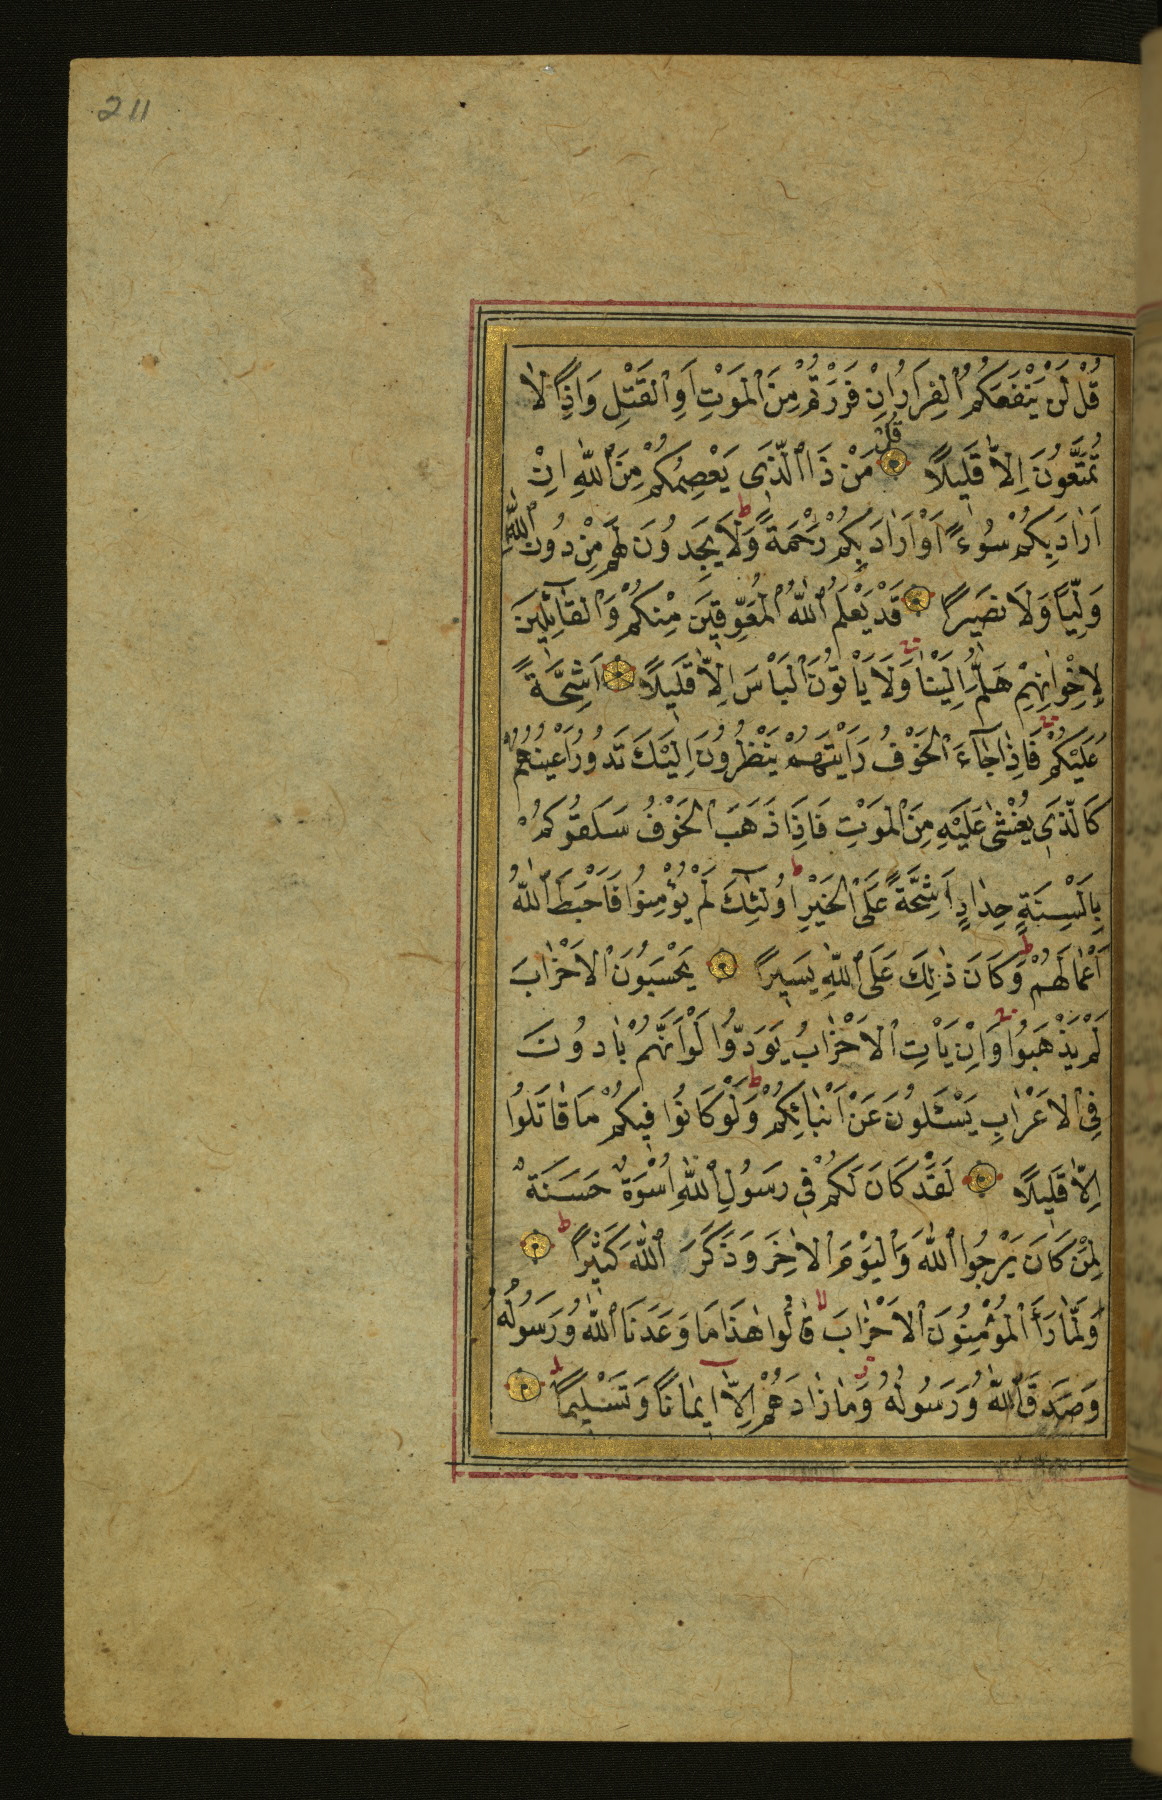 211
قُلْ لَنْ يَنْفَعَكُمُ ٱلْفِرَارُ اِنْ فَرَرْتُمْ مِنَ ٱلْمَوْتِ اَوِ ٱلْقَتْلِ وَاِذًا لَا
تُمَتَّعُونَ اِلَّا قَلِيلًا ۝ قُلْ مَنْ ذَا ٱلَّذِى يَعْصِمُكُمْ مِنَ ٱللّٰهِ اِنْ
اَرَادَ بِكُمْ سُوءً اَوْ اَرَادَ بِكُمْ رَحْمَةً ط وَلَا يَجِدُونَ لَهُمْ مِنْ دُونِ ٱللّٰهِ
وَلِيًّا وَلَا نَصِيرًا ۝ قَدْ يَعْلَمُ ٱللّٰهُ ٱلْمُعَوِّقِينَ مِنْكُمْ وَٱلْقَآئِلِينَ
لِاِخْوَانِهِمْ هَلُمَّ اِلَيْنَا وَلَا يَاْتُونَ ٱلْبَاْسَ اِلَّا قَلِيلًا ۝ اَشِحَّةً
عَلَيْكُمْ فَاِذَا جَآءَ ٱلْخَوْفُ رَاَيْتَهُمْ يَنْظُرُونَ اِلَيْكَ تَدُورُ اَعْيُنُهُمْ
كَالَّذِى يُغْشٰى عَلَيْهِ مِنَ ٱلْمَوْتِ فَاِذَا ذَهَبَ ٱلْخَوْفُ سَلَقُوكُمْ
بِاَلْسِنَةٍ حِدَادٍ اَشِحَّةً عَلَى ٱلْخَيْرِ ط اُولٰٓئِكَ لَمْ يُؤْمِنُوا فَاَحْبَطَ ٱللّٰهُ
اَعْمَالَهُمْ ط وَكَانَ ذٰلِكَ عَلَى ٱللّٰهِ يَسِيرًا ۝ يَحْسَبُونَ ٱلْاَحْزَابَ
لَمْ يَذْهَبُوا وَاِنْ يَاْتِ ٱلْاَحْزَابُ يَوَدُّوا لَوْ اَنَّهُمْ بَادُونَ
فِى ٱلْاَعْرَابِ يَسْـَٔلُونَ عَنْ اَنْبَائِكُمْ ط وَلَوْ كَانُوا فِيكُمْ مَا قَاتَلُوا
اِلَّا قَلِيلًا ۝ لَقَدْ كَانَ لَكُمْ فِى رَسُولِ ٱللّٰهِ اُسْوَةٌ حَسَنَةٌ
لِمَنْ كَانَ يَرْجُوا ٱللّٰهَ وَٱلْيَوْمَ ٱلْاٰخِرَ وَذَكَرَ ٱللّٰهَ كَثِيرًا ط ۝
وَلَمَّا رَاَ ٱلْمُؤْمِنُونَ ٱلْاَحْزَابَ لا قَالُوا هٰذَا مَا وَعَدَنَا ٱللّٰهُ وَرَسُولُهُ
وَصَدَقَ ٱللّٰهُ وَرَسُولُهُ وَمَا زَادَهُمْ اِلَّا اِيمَانًا وَتَسْلِيمًا ط ۝